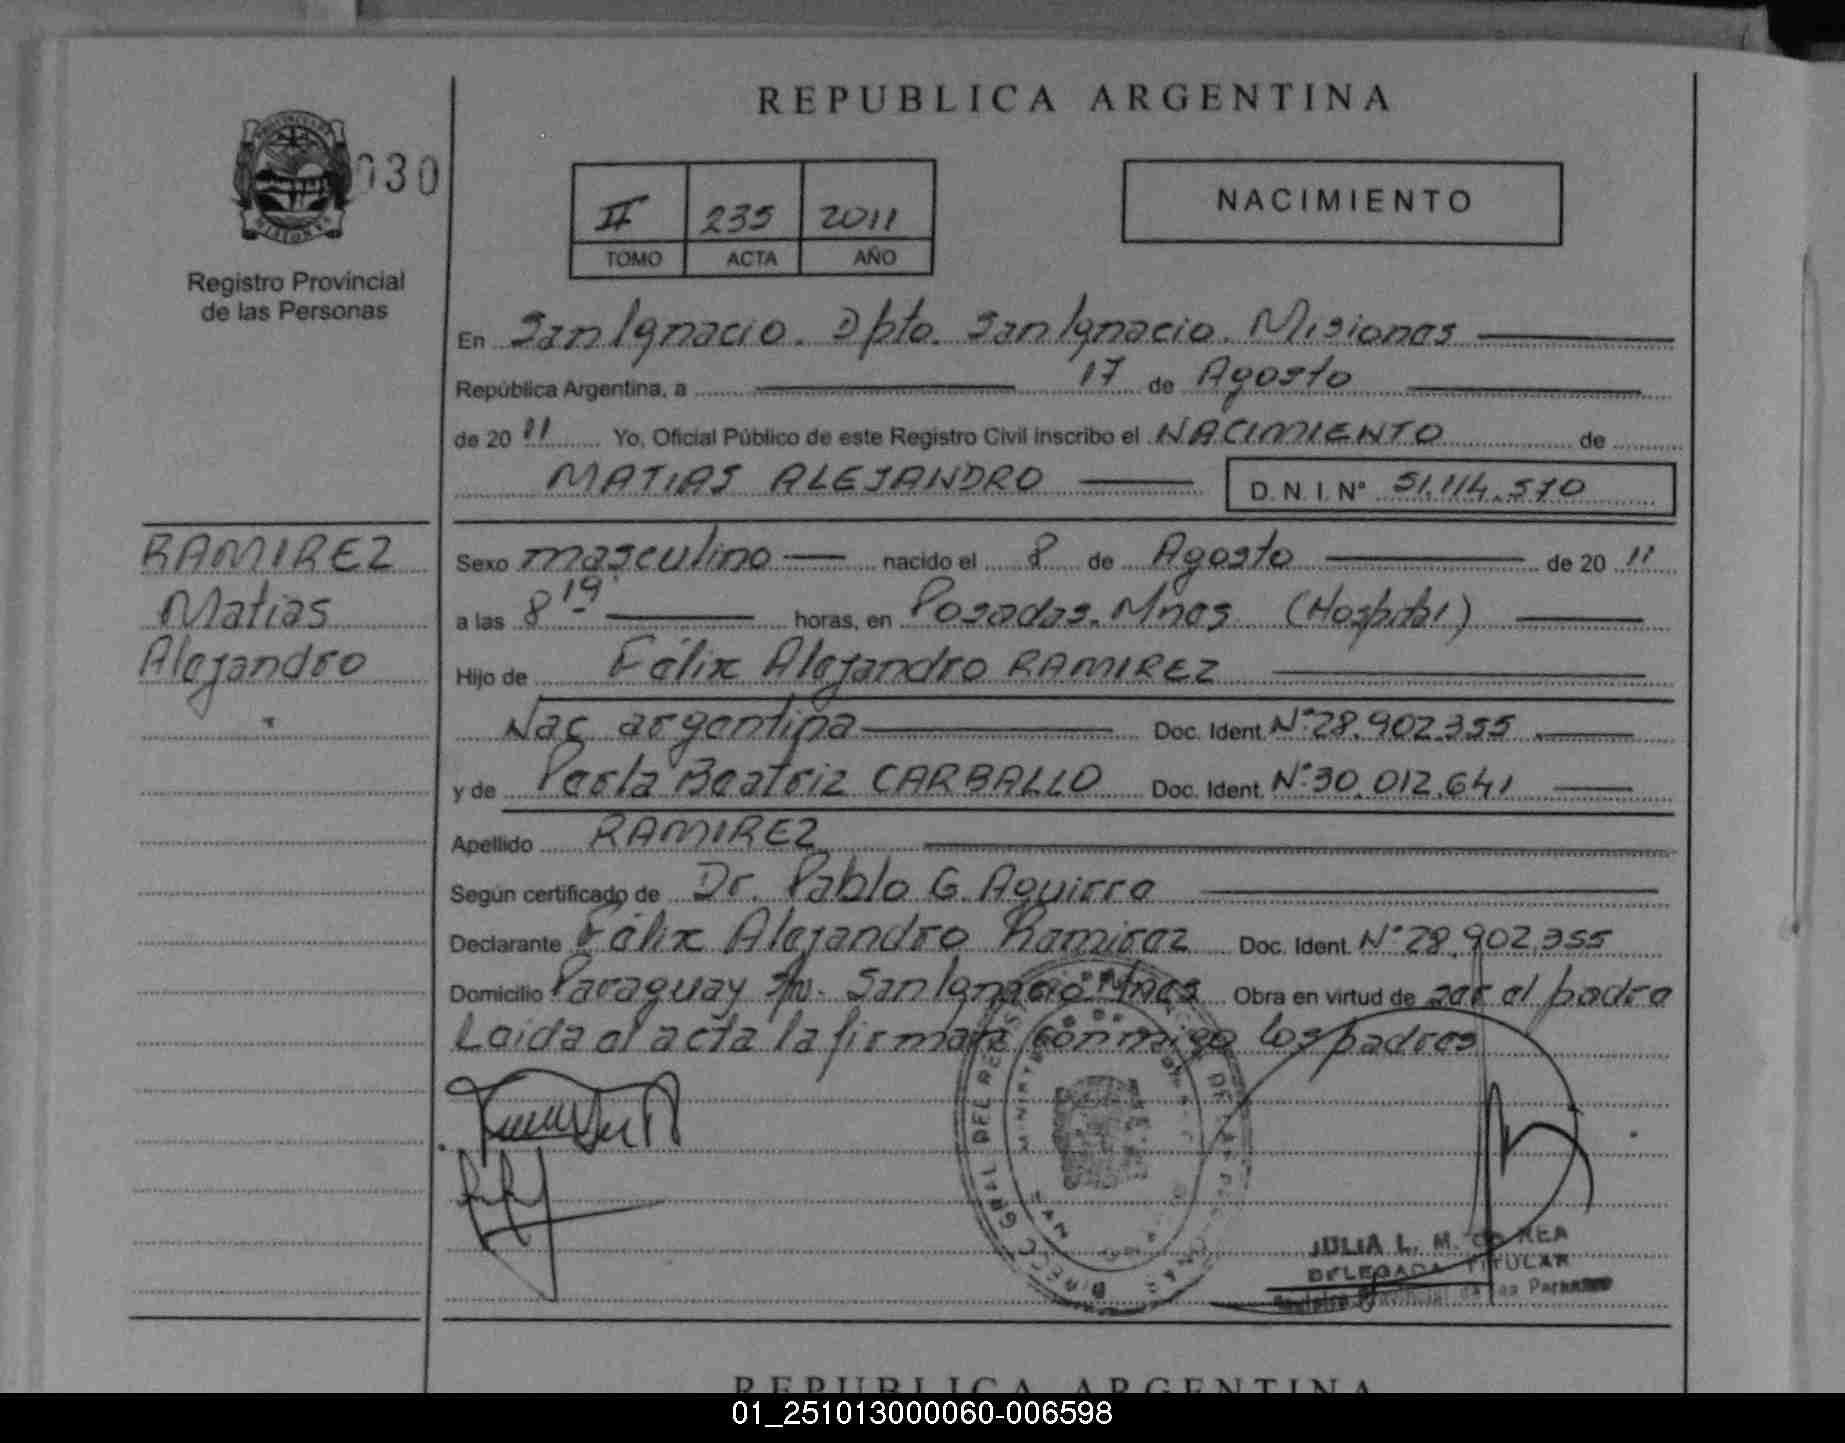 REPUBLICA ARGENTINA
030
II 235 2011
TOMO ACTA AÑO
NACIMIENTO
Registro Provincial
de las Personas
En San Ignacio. Dpto. San Ignacio. Misiones
República Argentina, a 17 de Agosto
de 20 11 Yo, Oficial Público de este Registro Civil inscribo el NACIMIENTO de
MATIAS ALEJANDRO D.N.I. Nº 51.114.570
RAMIREZ
Matias
Alejandro
Sexo masculino nacido el 8 de Agosto de 20 11
a las 8 19 horas, en Posadas. Mnes (Hospital)
Hijo de Félix Alejandro RAMIREZ
Nac argentina Doc. Ident. Nº 28.902.355
y de Perla Beatriz CARBALLO Doc. Ident. Nº 30.012.641
Apellido RAMIREZ
Según certificado de Dr. Pablo G. Aguirre
Declarante Félix Alejandro Ramirez Doc. Ident. Nº 28.902.355
Domicilio Paraguay S/N. San Ignacio Mnes Obra en virtud de ser el padre
Leida el acta la firman conmigo los padres
JULIA L. M.
DELEGADA TITULAR
REPUBLICA ARGENTINA
01_251013000060-006598